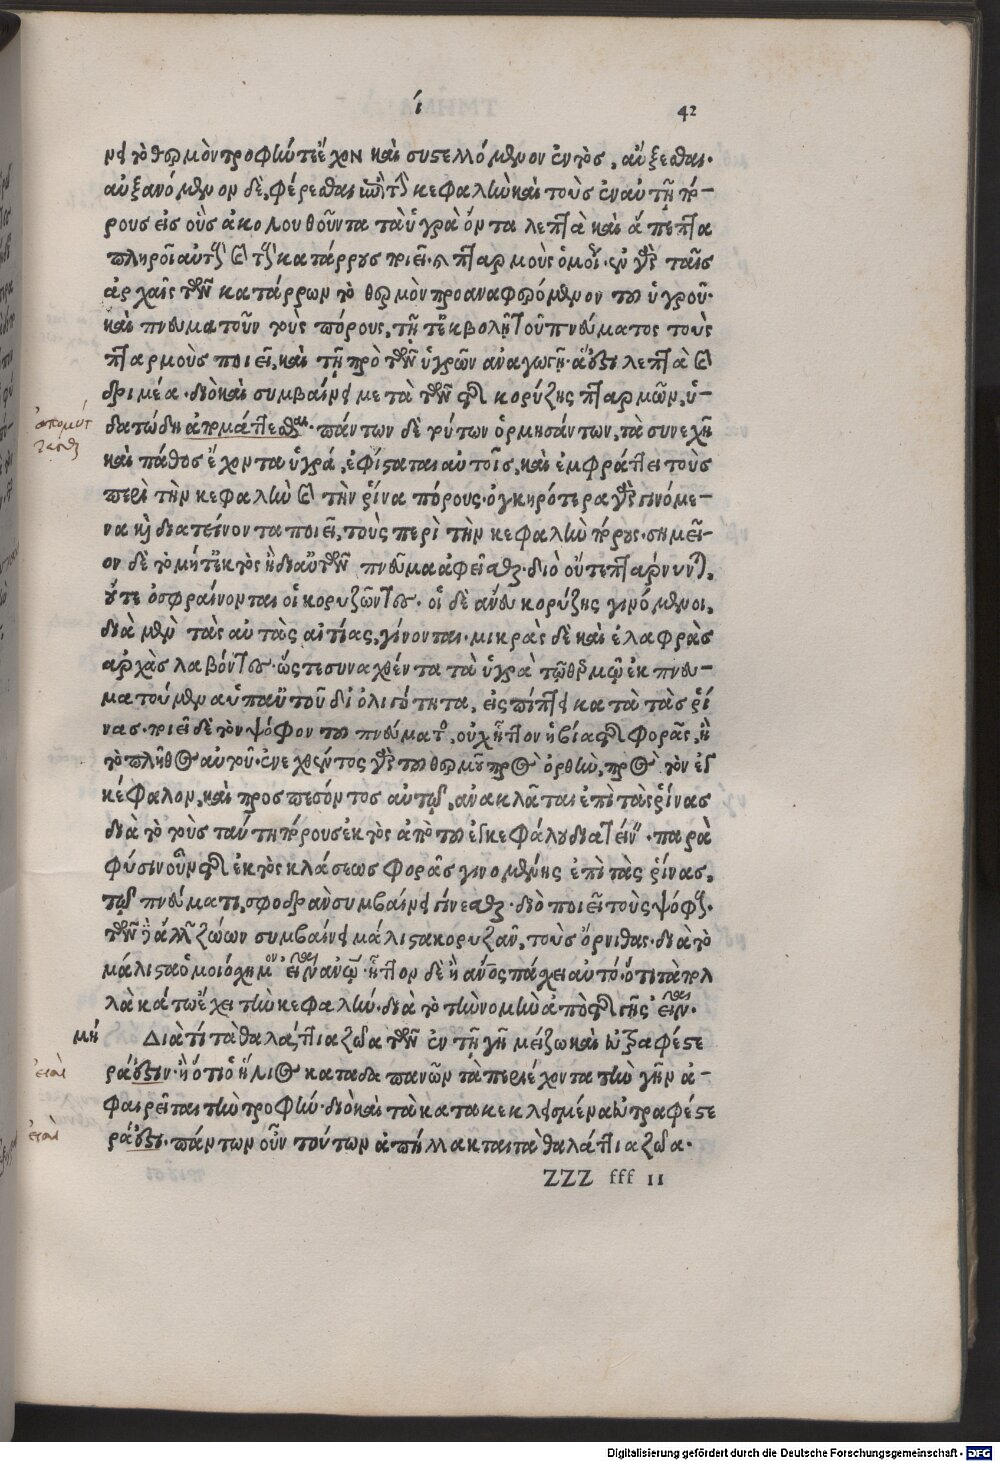 ί 42
νει τὸ θερμὸν τροφὴν τε ἔχον καὶ συστελλόμενον ἐντὸς, αὔξεσθαι.
αὐξανόμενον δὲ, φέρεσθαι ἐπὶ τὴν κεφαλὴν καὶ τοὺς ἐν αὐτῇ πό-
ρους εἰς οὓς ἀκολουθοῦντα τὰ ὑγρὰ ὄντα λεπτὰ καὶ ἄπεπτα
πληροῖ αὐτοὺς καὶ τοὺς κατάρρους ποιεῖ. πταρμοὺς ὁμοί. ἐν γὰρ ταῖς
ἀρχαῖς τῶν κατάρρων τὸ θερμὸν προαναφερόμενον τοῦ ὑγροῦ.
καὶ πνευματοῦν τοὺς πόρους, τῇ τε ἐκβολῇ τοῦ πνεύματος τοὺς
πταρμοὺς ποιεῖ, καὶ τῇ πρὸ τῶν ὑγρῶν ἀναγωγῇ. ἅ ἐστι λεπτὰ καὶ
δριμέα. διὸ καὶ συμβαίνει μετὰ τῶν τῆς κορύζης πταρμῶν, ὑ-
δατώδη ἀπομάττεσθαι. πάντων δὲ τούτων ὁρμησάντων, τὰ συνεχῆ
ἀπομύτ
τεσθαι
καὶ πάθος ἔχοντα ὑγρά, ἐφίσταται αὐτοῖς, καὶ ἐμφράττει τοὺς
περὶ τὴν κεφαλὴν καὶ τὴν ῥίνα πόρους. ὀγκηρότερα γὰρ γινόμε-
να καὶ διατείνοντα ποιεῖ, τοὺς περὶ τὴν κεφαλὴν πόρους. σημεῖ-
ον δὲ τὸ μήτε ἐκτὸς ἢ δι' αὐτῶν πνεῦμα ἀφεῖσθαι. διὸ οὔτε πτάρνυνται,
οὔτε ὀσφραίνονται οἱ κορυζῶντες. οἱ δὲ ἄνευ κορύζης γινόμενοι,
διὰ μὲν τὰς αὐτὰς αἰτίας, γίνονται. μικρὰς δὲ καὶ ἐλαφρὰς
ἀρχὰς λαβόντες. ὥστε συναχθέντα τὰ ὑγρὰ τῷ θερμῷ ἐκπνευ-
ματούμενα ὑπ' αὐτοῦ δι' ὀλιγότητα, εἰς πίπτει κατὰ τὰς ῥί
νας. ποιεῖ δὲ τὸν ψόφον τοῦ πνεύματος, οὐχ ἧττον ἡ βία τῆς φορᾶς, ἢ
τὸ πλῆθος αὐτοῦ. ἐνεχθέντος γὰρ τοῦ θερμοῦ πρὸς ὀρθὴν, πρὸς τὸν ἐγ
κέφαλον, καὶ προσπεσόντος αὐτῷ, ἀνακλᾶται ἐπὶ τὰς ῥίνας
διὰ τὸ τοὺς ταύτῃ πόρους ἐκτὸς ἀπὸ τοῦ ἐγκεφάλου διατείνειν. παρὰ
φύσιν οὖν τῆς ἐκτὸς κλάσεως φορᾶς γινομένης ἐπὶ τὰς ῥίνας,
τῷ πνεύματι, σφοδρὰν συμβαίνει γίνεσθαι. διὸ ποιεῖ τοὺς ψόφους.
τῶν δὲ ἄλλων ζώων συμβαίνει μάλιστα κορυζᾶν, τοὺς ὄρνιθας. διὰ τὸ
μάλιστα ὁμοιόσχημον εἶναι ἀνθρώπῳ. ἧττον δὲ ἢ ἄνθρωπος πάσχει αὐτό. ὅτι τὰ πολ
λὰ κάτω ἔχει τὴν κεφαλὴν. διὰ τὸ τὴν νομὴν ἀπὸ τῆς γῆς εἶναι.
μή Διὰ τί τὰ θαλάττια ζῶα τῶν ἐν τῇ γῇ μείζω καὶ εὐτραφέστε
ράἐστιν. ἢ ὅτι ὁ ἥλιος καταδαπανῶν τὰ περιέχοντα τὴν γῆν ἀ-
φαιρεῖται τὴν τροφὴν. διὸ καὶ τὰ κατακεκλεισμένα εὐτραφέστε
ράἐστι. πάντων οὖν τούτων ἀπήλλακται τὰ θαλάττια ζῶα.
ZZZ fff II
Digitalisierung gefördert durch die Deutsche Forschungsgemeinschaft - DFG